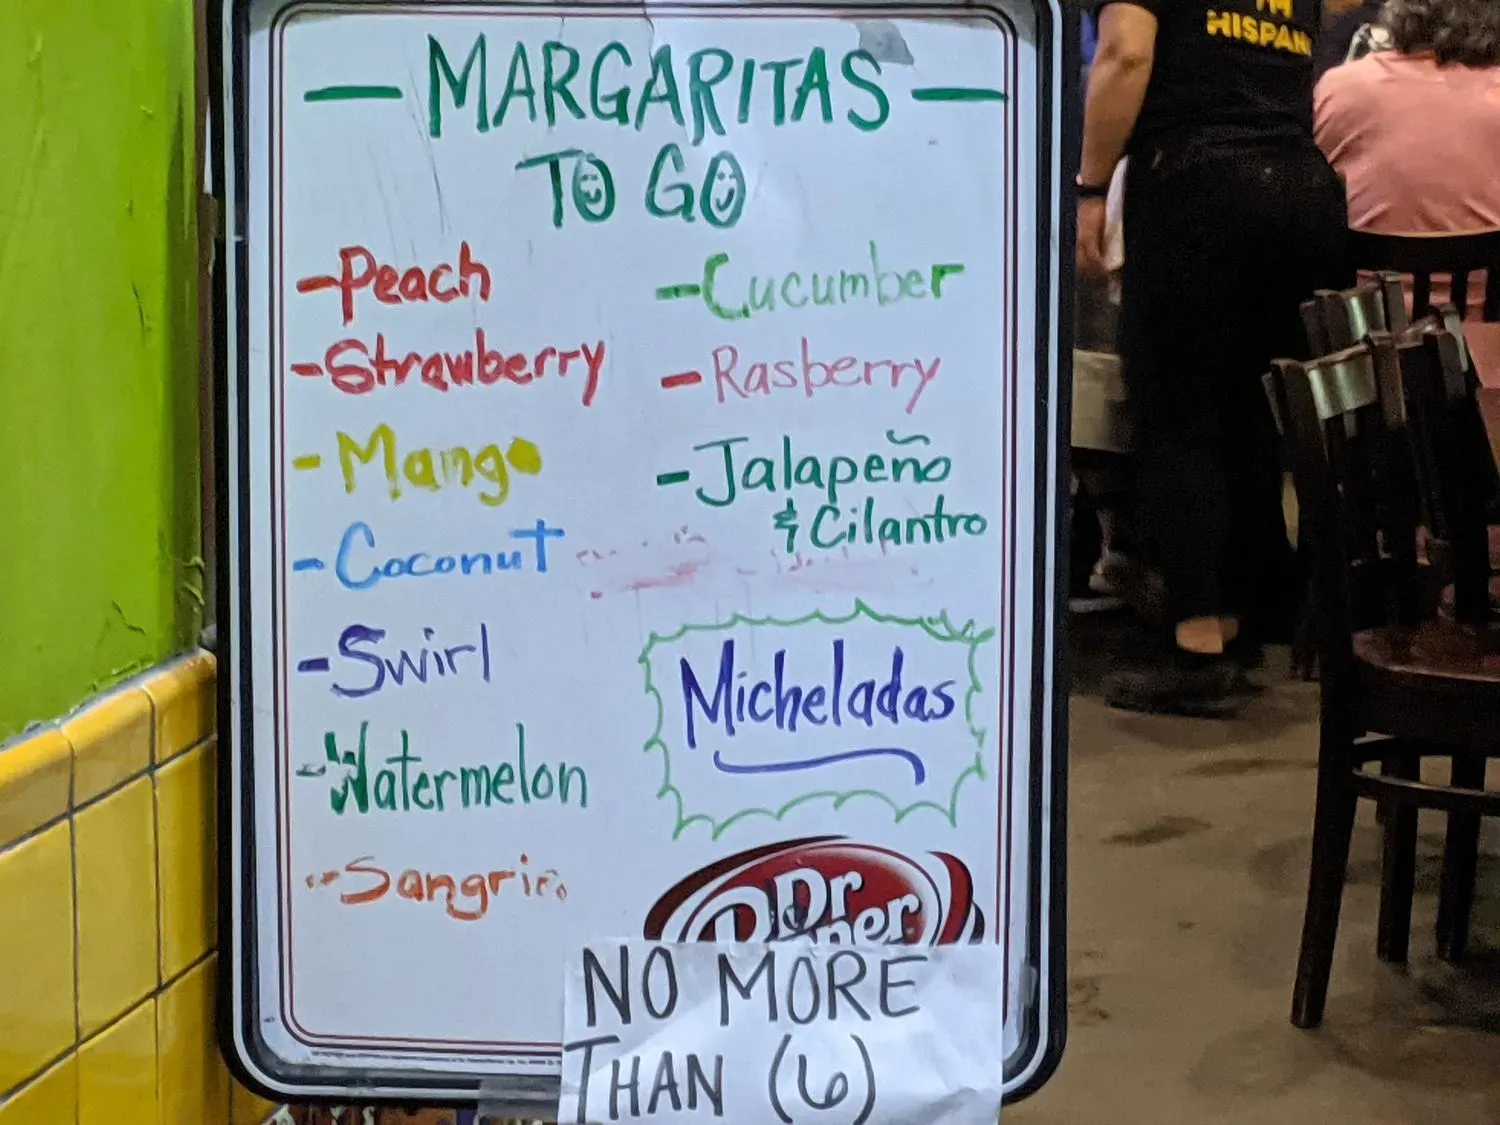 — MARGARITAS —
TO GO
- Peach
- Strawberry
- Mango
- Coconut
- Swirl
- Watermelon
- Sangria
- Cucumber
- Rasberry
- Jalapeño
& Cilantro
Micheladas
Dr
Pepper
NO MORE
THAN (6)
HISPAN